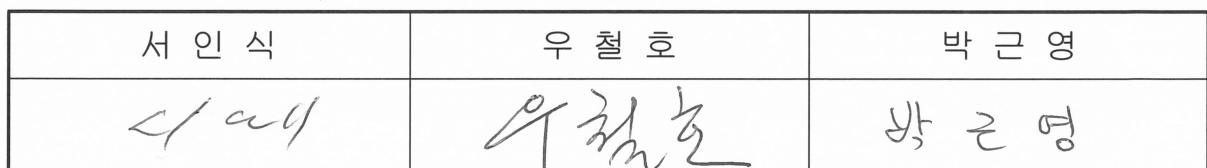 서 인 식 우 철 호 박 근 영
우철호 박 근 영